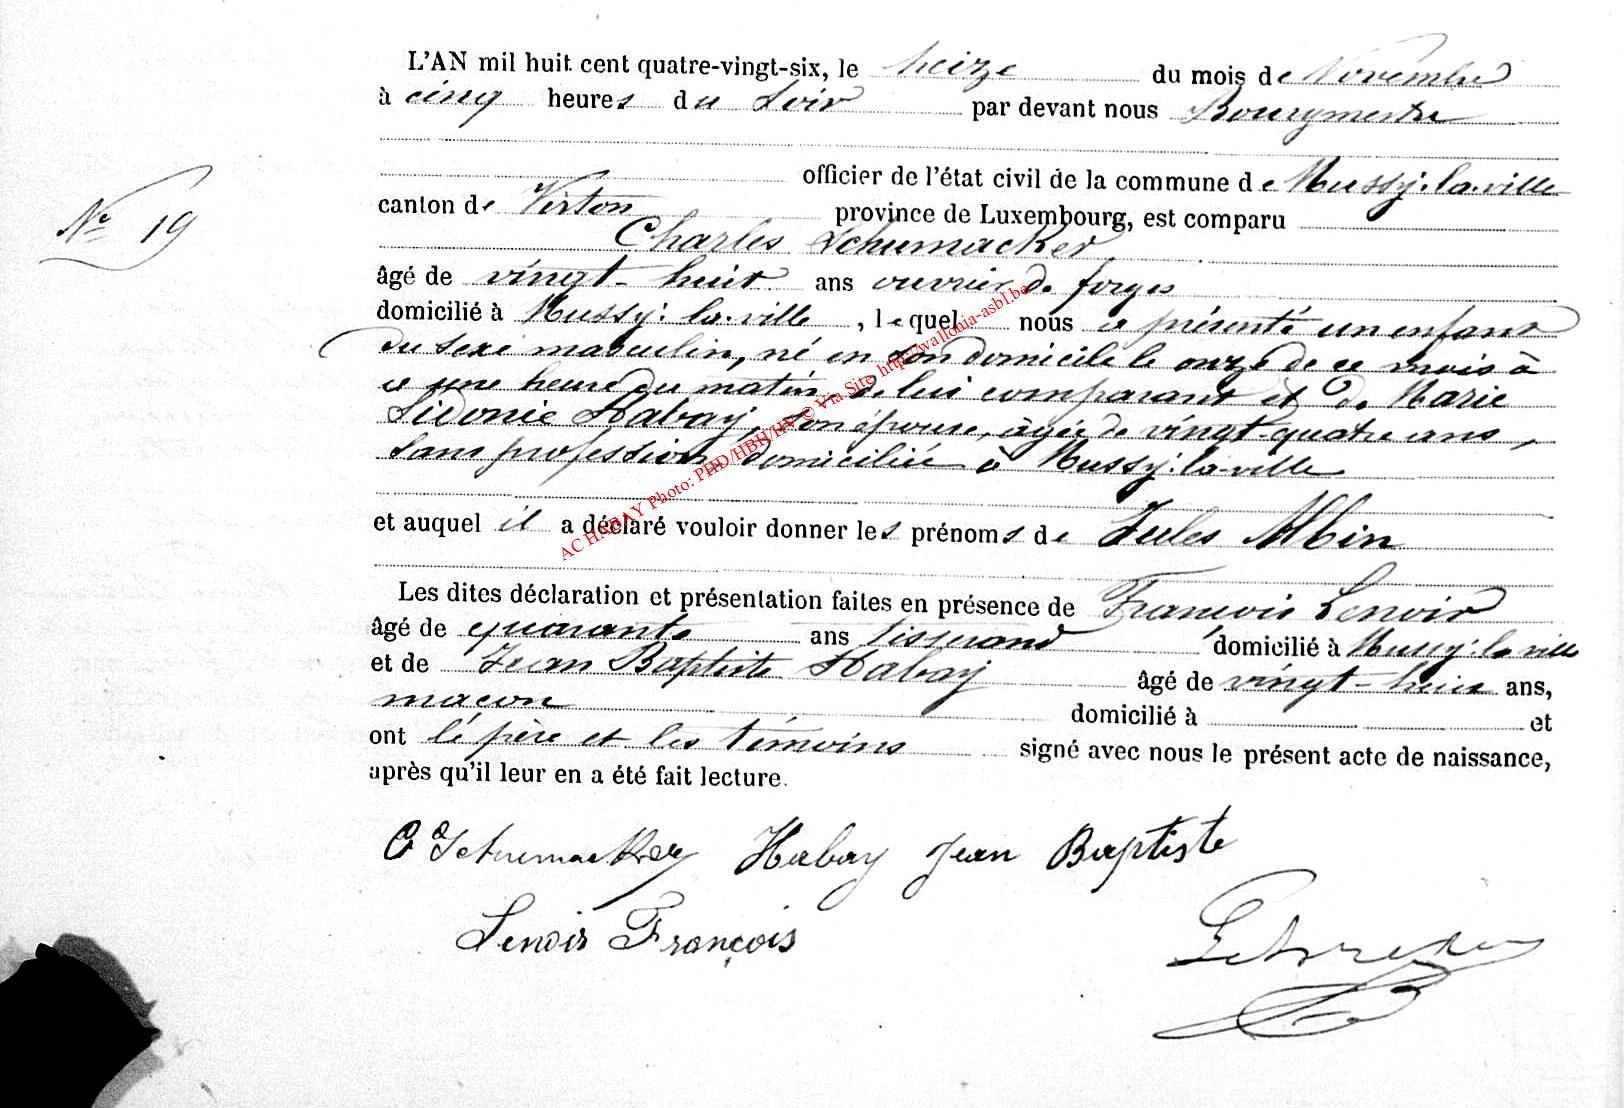 L'AN mil huit cent quatre-vingt-six, le treize du mois de Novembre
à cinq heures du soir par devant nous Bourgmestre
officier de l'état civil de la commune de Mussy-la-ville
N° 19
canton de Virton province de Luxembourg, est comparu
Charles Schumacker
âgé de vingt-huit ans ouvrier de forges
domicilié à Mussy-la-ville, lequel nous a présenté un enfant
du sexe masculin, né en son domicile le onze de ce mois à
une heure du matin, de lui comparant et de Marie
Sidonie Habay, son épouse, âgée de vingt-quatre ans,
sans profession, domiciliée à Mussy-la-ville
et auquel il a déclaré vouloir donner les prénoms de Jules Albin
Les dites déclaration et présentation faites en présence de François Lenoir
âgé de quarante ans tisserand domicilié à Mussy-la-ville
et de Jean Baptiste Habay âgé de vingt-huit ans,
maçon domicilié à et
ont le père et les témoins signé avec nous le présent acte de naissance,
après qu'il leur en a été fait lecture.
AC HABAY Photo: PHD/HBH/HV © Via Site: http://wallonia-asbl.be
C Schumacker Habay Jean Baptiste
Lenoir François